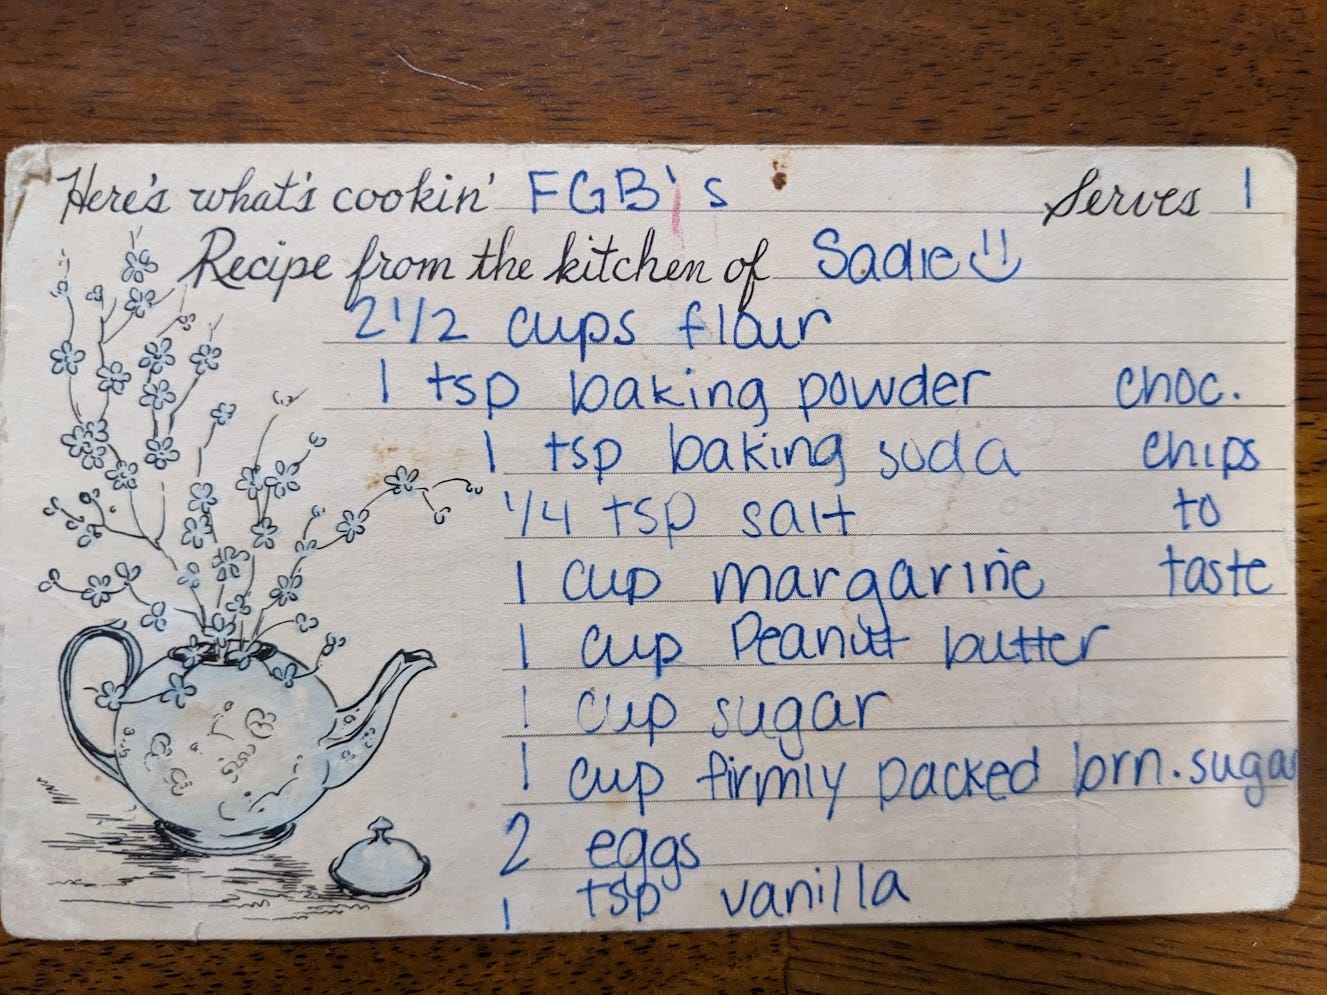 Here's what's cookin' FGB's Serves 1
Recipe from the kitchen of Sadie
2 1/2 cups flour
1 tsp baking powder choc.
1 tsp baking soda chips
1/4 tsp salt to
1 cup margarine taste
1 cup Peanut butter
1 cup sugar
1 cup firmly packed brn. sugar
2 eggs
1 tsp vanilla